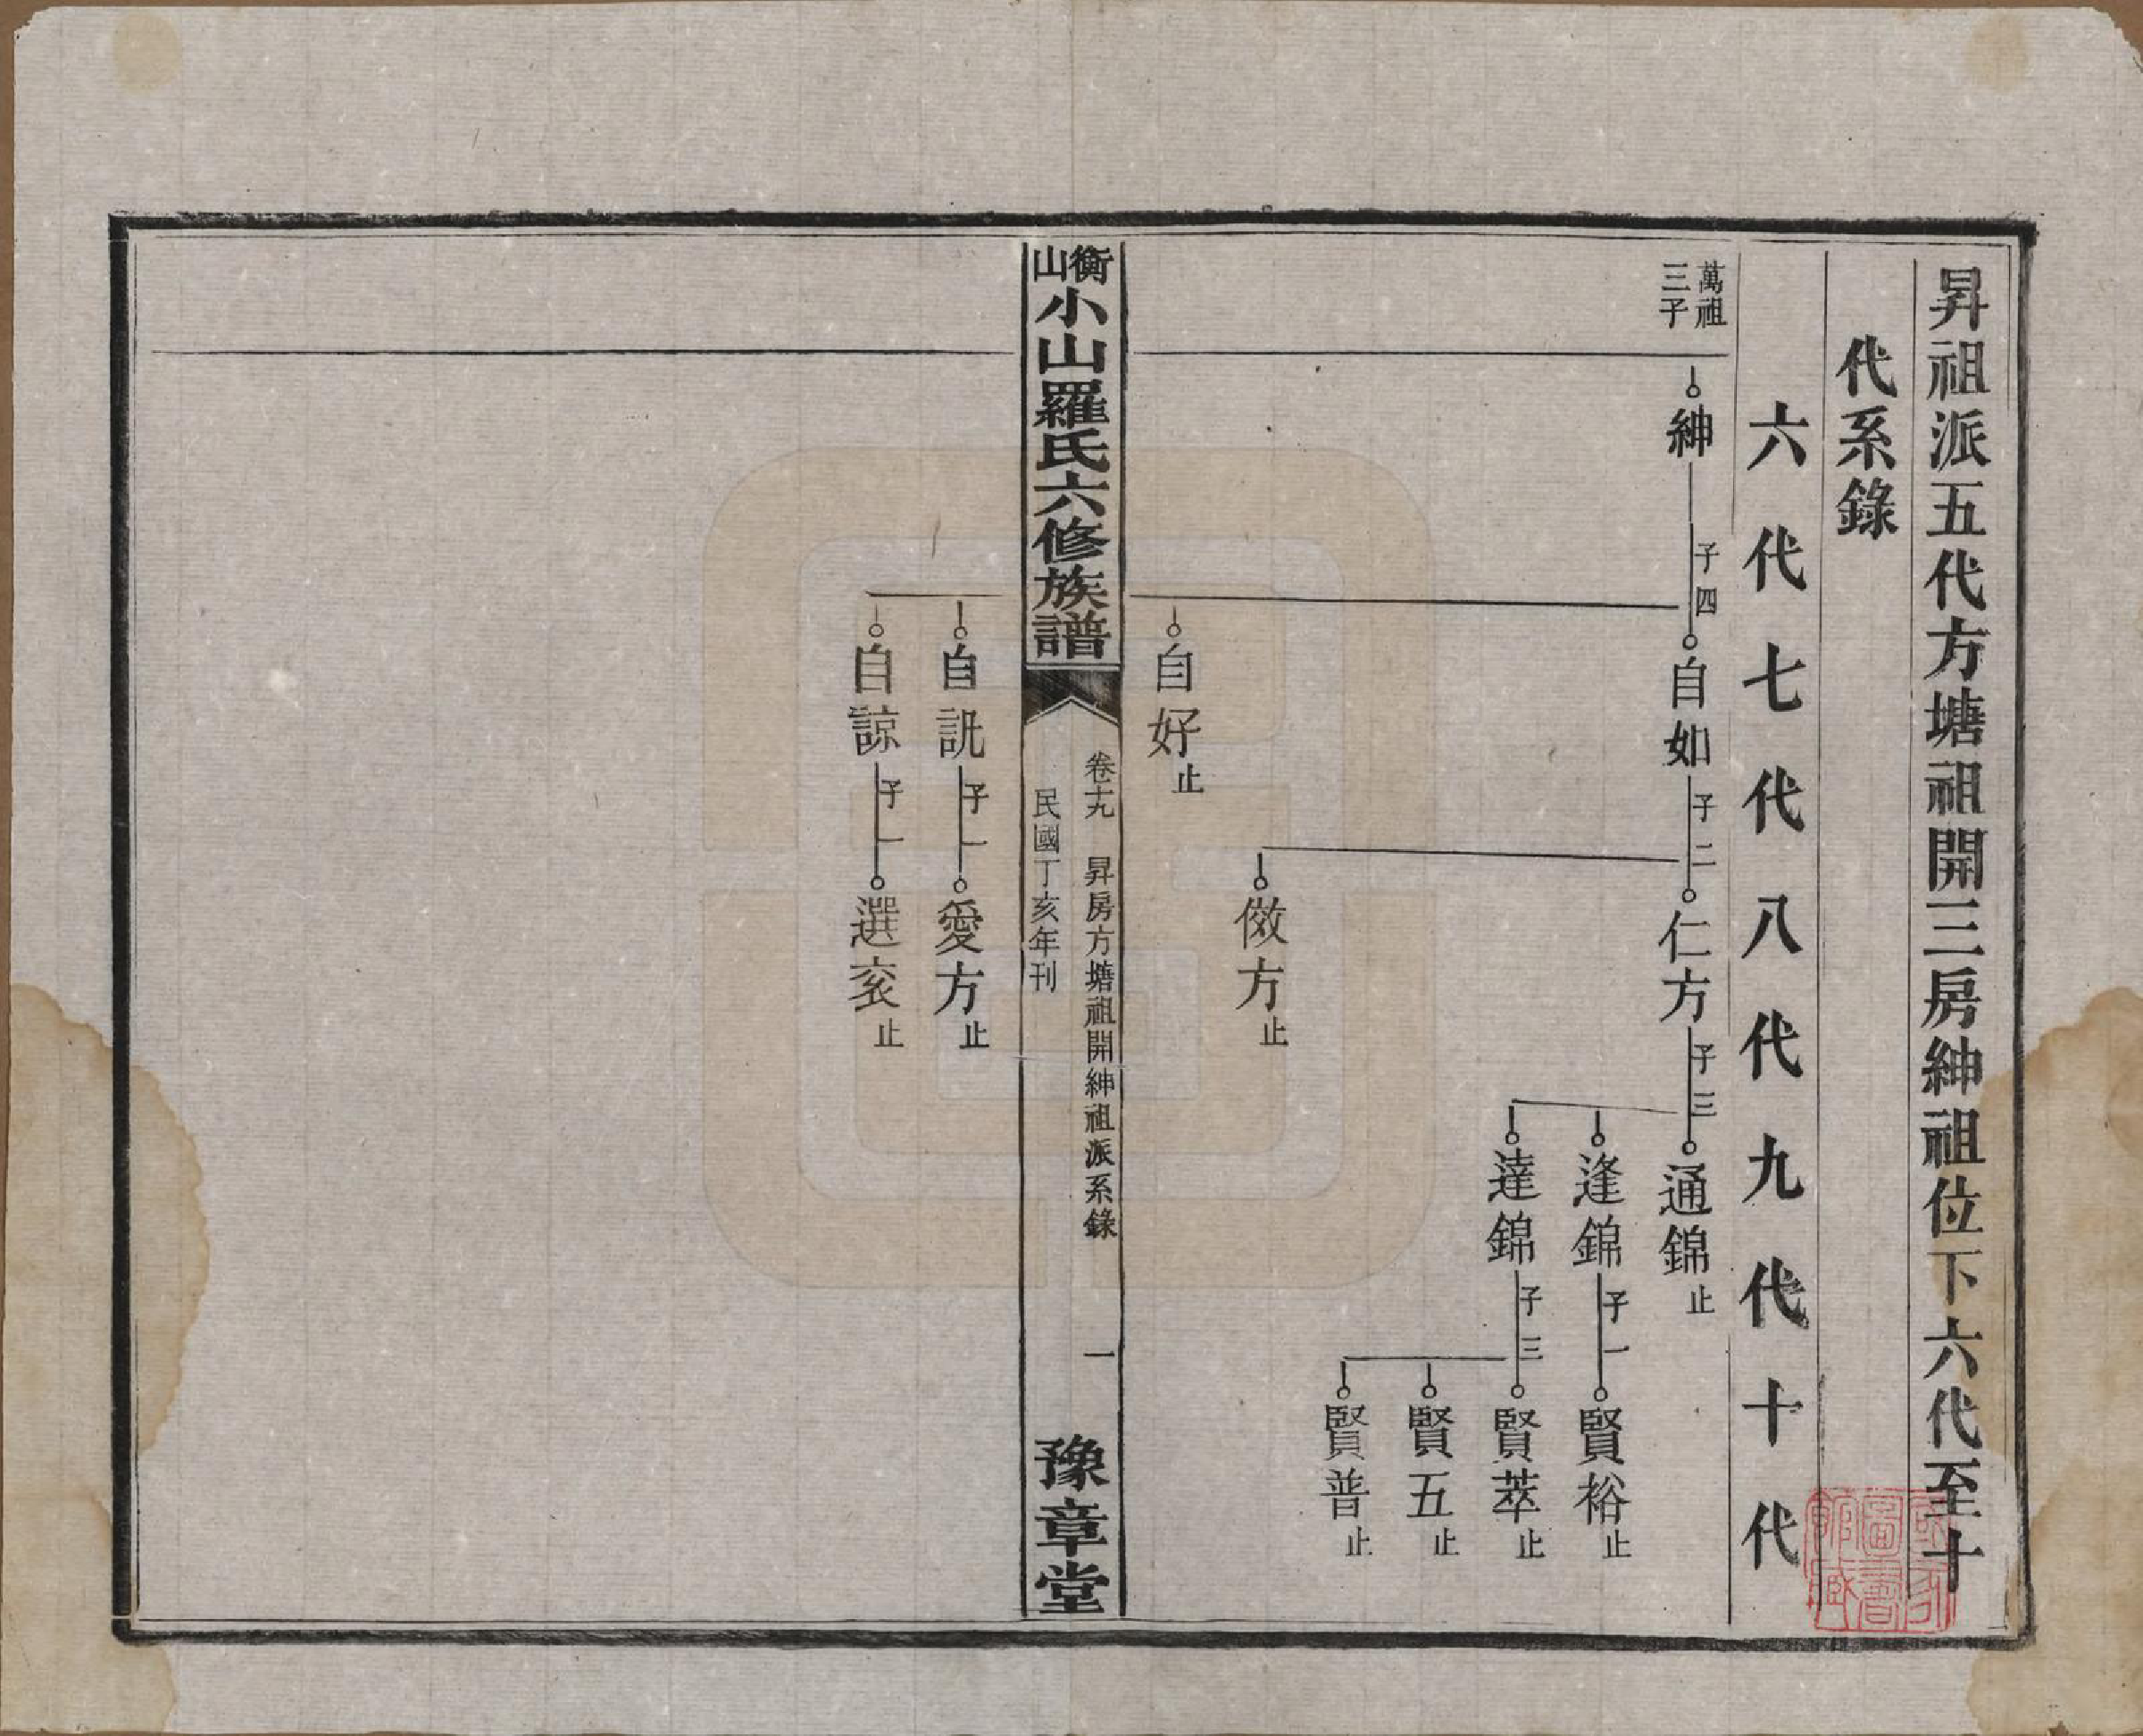 昇祖派五代方塘祖開三房紳祖位下六代至十
代系錄
六代七代八代九代十代
萬祖
三子
紳
子四
自如
子二
仁方
子三
通錦止
逢錦
子一
賢裕止
達錦
子三
賢萃止
賢五止
賢普止
傚方止
自好止
衡山小山羅氏六修族譜
卷十九 昇房方塘祖開紳祖派系錄 一
民國丁亥年刊
豫章堂
自訛
子一
愛方止
自諒
子一
選亥止